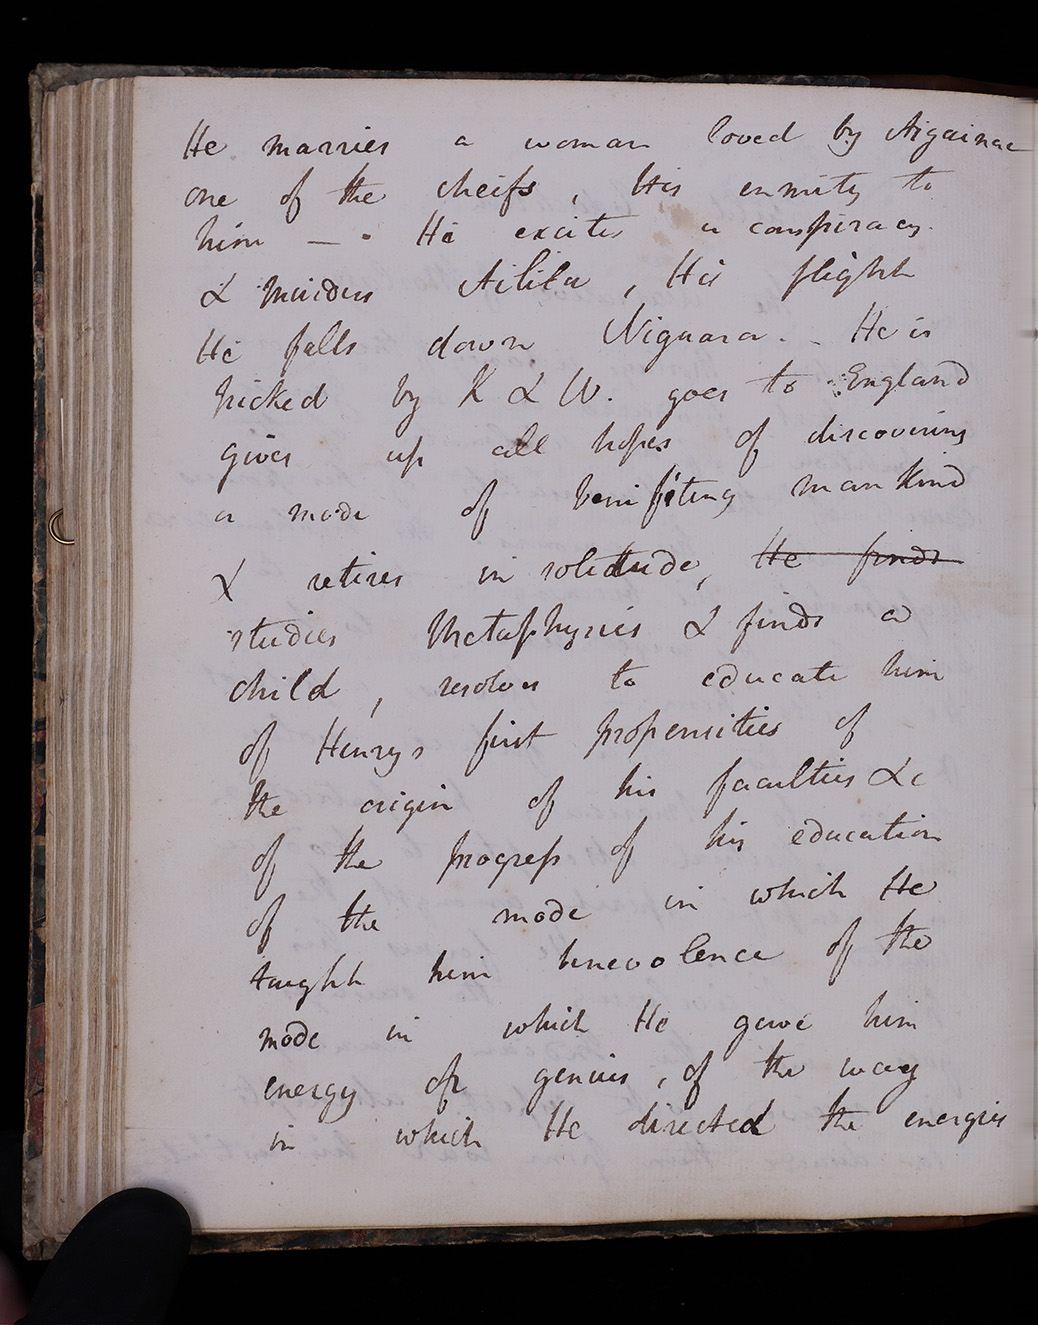 He marries a woman loved by Aigainac
one of the cheifs, His enmity to
him — . He excites a conspiracy.
& murders Ailila, His flight
He falls down Niguara. . He is
picked by K & W. goes to England
gives up all hopes of discovering
a mode of benifiting mankind
& retires in solitude, He finds
studies Metaphysics & finds a
child, resolves to educate him
of Henrys first propensities of
the origin of his faculties &c
of the progress of his education
of the mode in which He
taught him benevolence of the
mode in which He gave him
energy of genius, of the way
in which He directed the energies